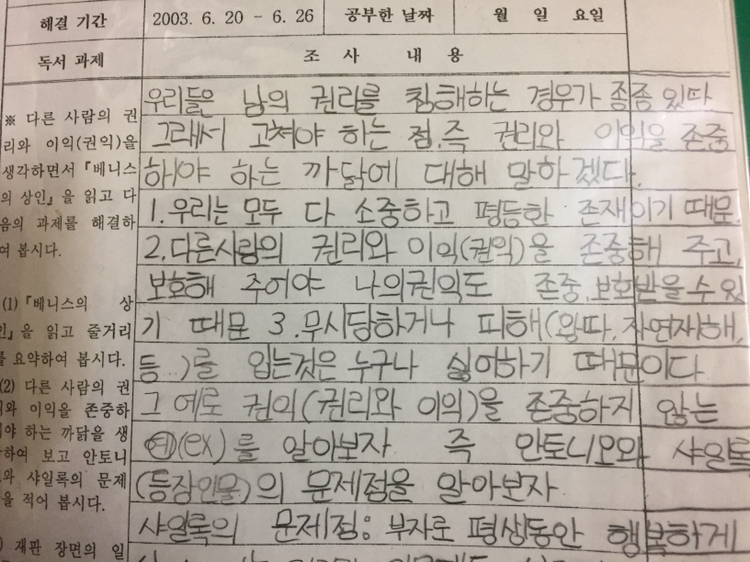 해결 기간 2003. 6. 20 - 6. 26 공부한 날짜 월 일 요일
독서 과제 조 사 내 용
※ 다른 사람의 권
리와 이익(권익)을
생각하면서『베니스
의 상인』을 읽고 다
음의 과제를 해결하
여 봅시다.
(1)『베니스의 상
인』을 읽고 줄거리
를 요약하여 봅시다.
(2) 다른 사람의 권
리와 이익을 존중하
여야 하는 까닭을 생
각하여 보고 안토니
오와 샤일록의 문제
을 적어 봅시다.
재판 장면의 일
우리들은 남의 권리를 침해하는 경우가 종종 있다
그래서 고쳐야 하는 점, 즉 권리와 이익을 존중
하)야 하는 까닭에 대해 말하겠다.
1. 우리는 모두 다 소중하고 평등한 존재이기 때문.
2. 다른사람의 권리와 이익(권익)을 존중해 주고,
보호해 주어야 나의권익도 존중, 보호받을수 있
기 때문 3. 무시당하거나 피해(왕따, 자연재해,
등..)를 입는것은 누구나 싫어하기 때문이다
그 예로 권익(권리와 이익)을 존중하지 않는
예(ex)를 알아보자 즉 안토니오와 샤일록
(등장인물)의 문제점을 알아보자
샤일록의 문제점: 부자로 평생동안 행복하게